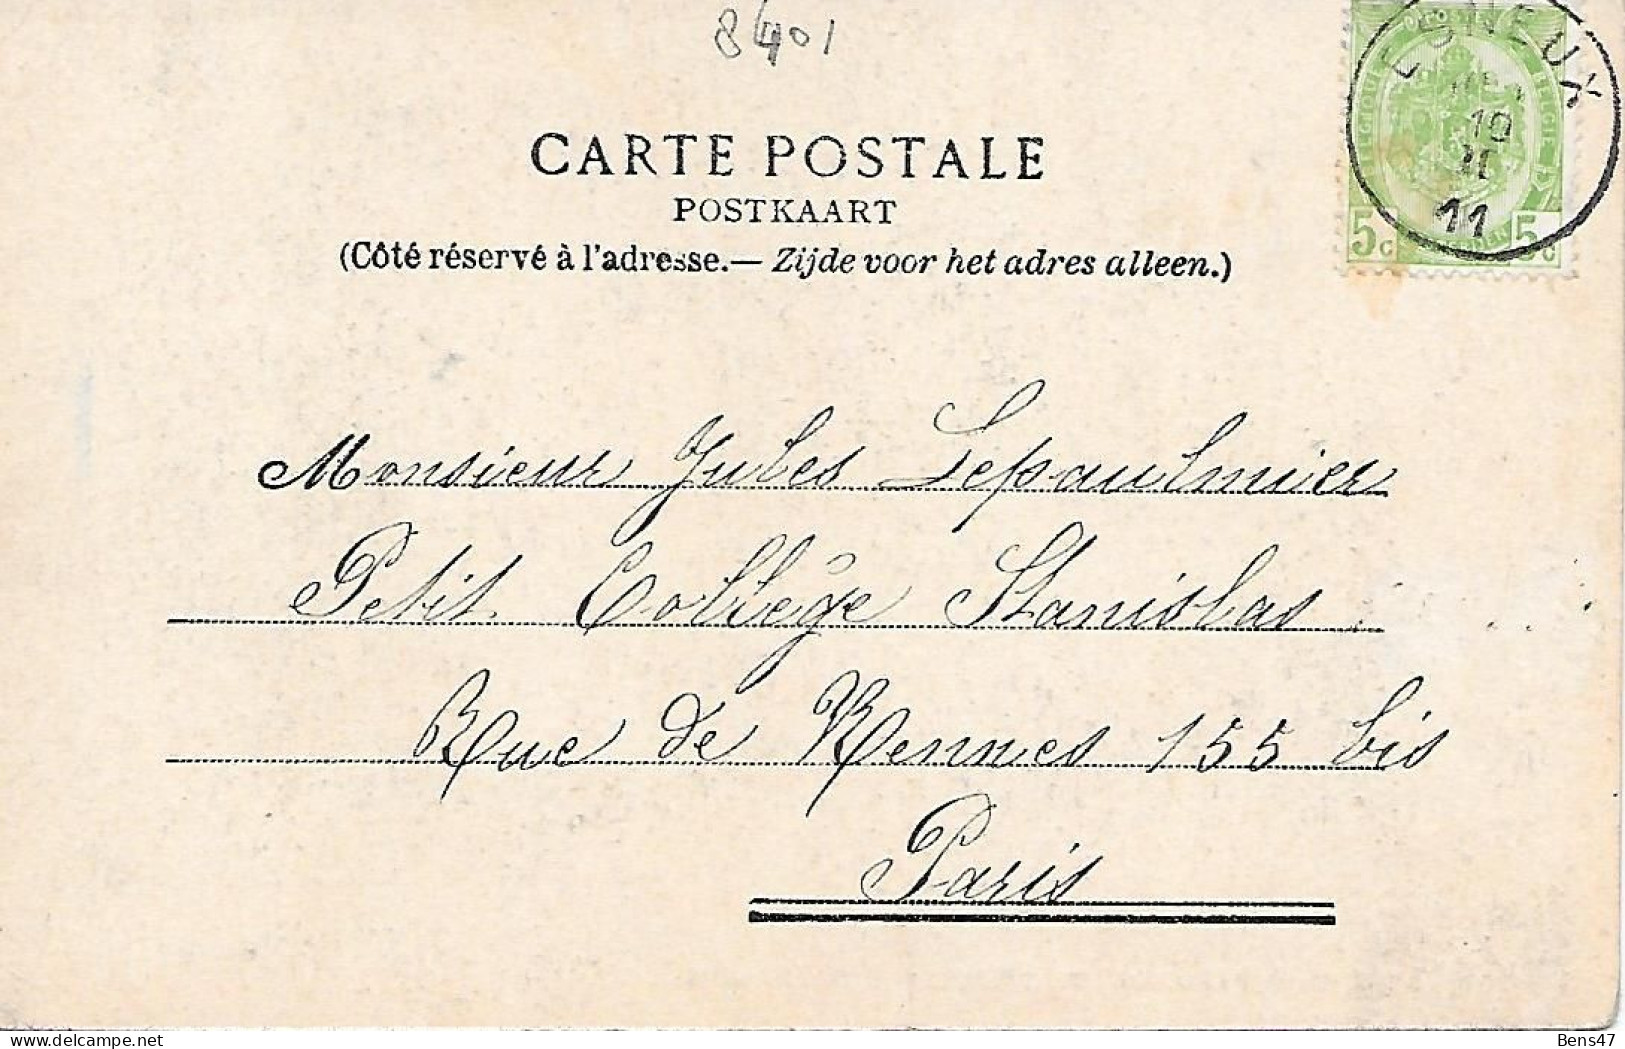 8401
CARTE POSTALE
POSTKAART
(Côté réservé à l'adresse.— Zijde voor het adres alleen.)
ESNEUX
10
11
5c 5c
Monsieur Jules Lepaulmier
Petit Collège Stanislas
Rue de Rennes 155 bis
Paris
Bens47